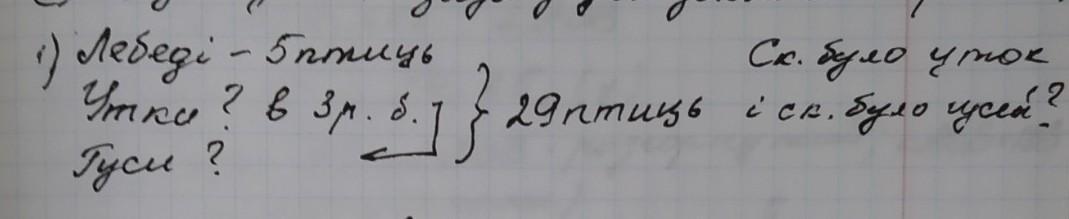 1) Лебеді - 5 птиць Ск. було уток
Утки ? в 3 р. б. } 29 птиць і ск. було гусей?
Гуси ?